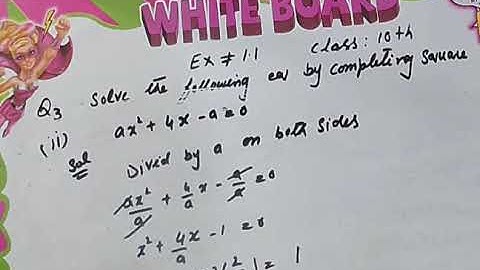 WHITE BOARD
Ex # 1.1 Class: 10th
Q3 Solve the following eq by completing square
(ii) ax² + 4x - a = 0
Sol Divied by a on both sides
ax²/a + 4/a x - a/a = 0
x² + 4/a x - 1 = 0